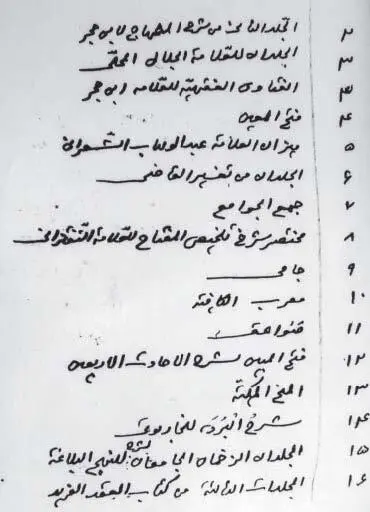 ٢ المجلد الثامن من شرح المنهاج لابن حجر
٣ المجلدان للعلامة الجلال المحلى
٣ الفتاوى الفقهية للعلامه ابن حجر
٤ فتح المعين
٥ ميزان العلامة عبدالوهاب الشعرانى
٦ المجلدان من تفسير القاضى
٧ جمع الجوامع
٨ مختصر شرح تلخيص المفتاح للعلامة التفتزانى
٩ جامى
١٠ معرب الكافية
١١
١٢ فتح المبين لشرح الاحاديث الاربعين
١٣ المنح المكيّة
١٤ شرح البردة للخاربوتى
١٥ المجلدان الضخمان الجامعان لشرح للنهج البلاغة
١٦ المجلدات الثالثة من كتاب العقد الفريد